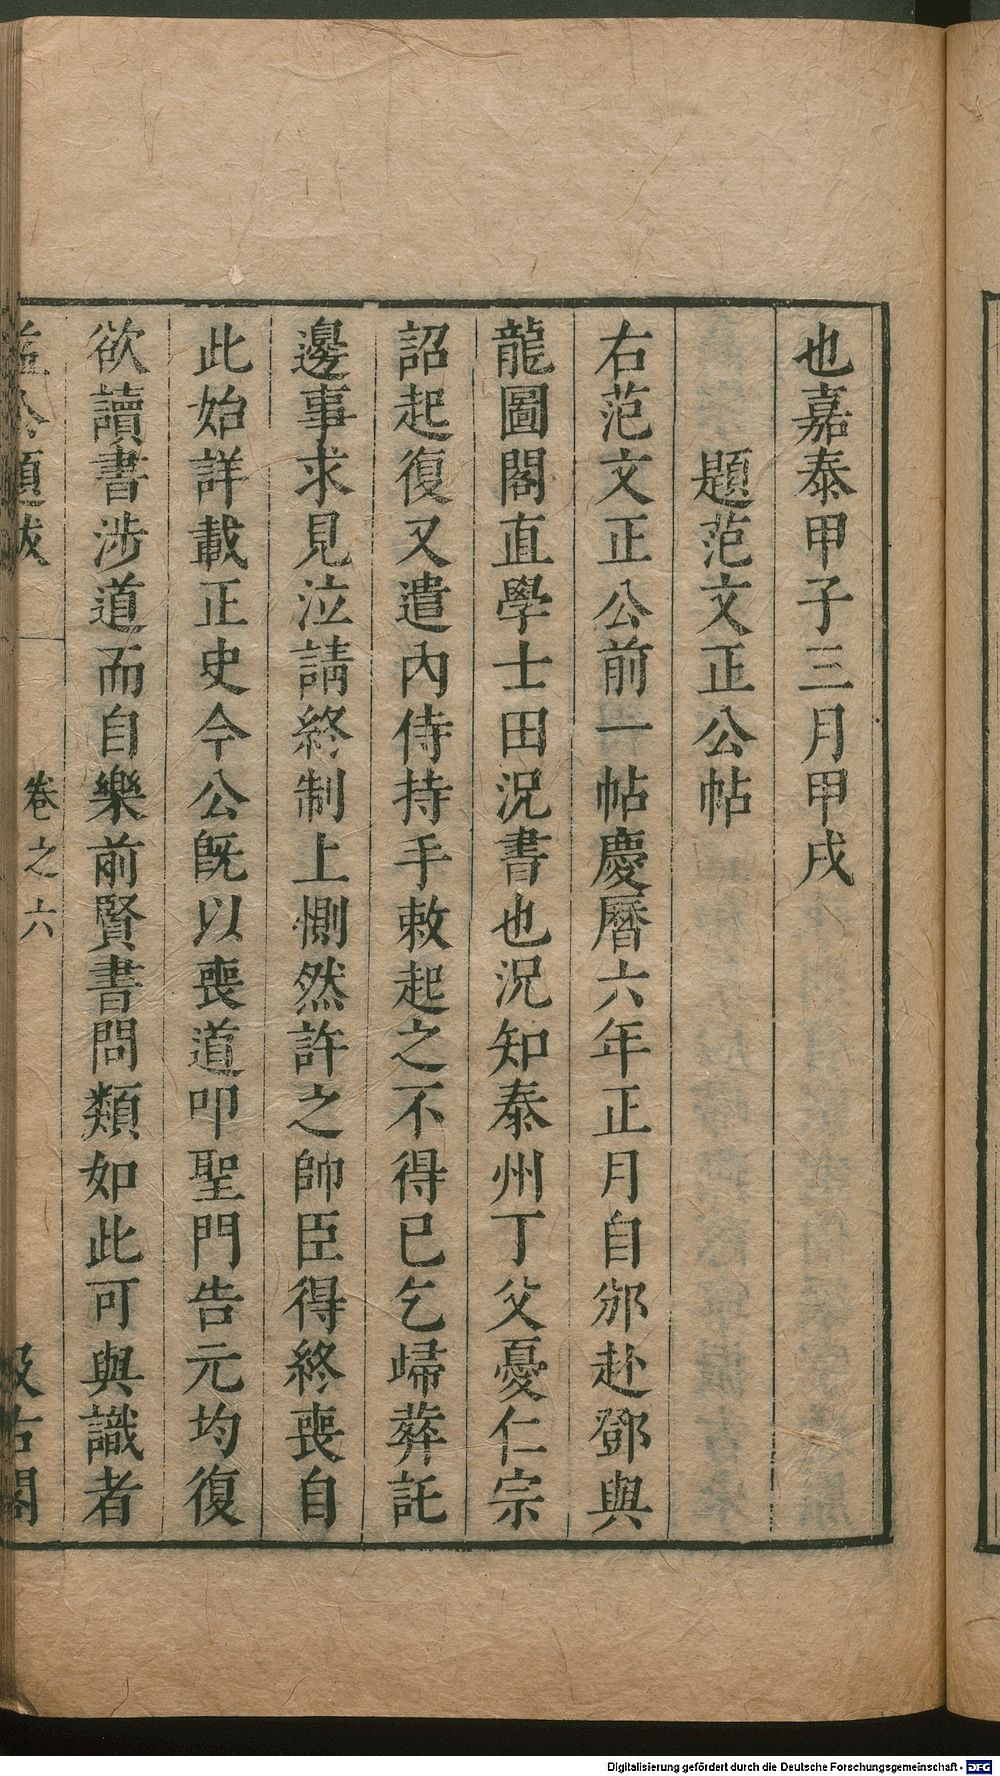 也嘉泰甲子三月甲戌
題范文正公帖
右范文正公前一帖慶曆六年正月自邠赴鄧與
龍圖閣直學士田況書也況知泰州丁父憂仁宗
詔起復又遣內侍持手敕起之不得已乞歸葬託
邊事求見泣請終制上惻然許之帥臣得終喪自
此始詳載正史今公既以喪道叩聖門告元均復
欲讀書涉道而自樂前賢書問類如此可與識者
益公題跋
卷之六
汲古閣
Digitalisierung gefördert durch die Deutsche Forschungsgemeinschaft - DFG